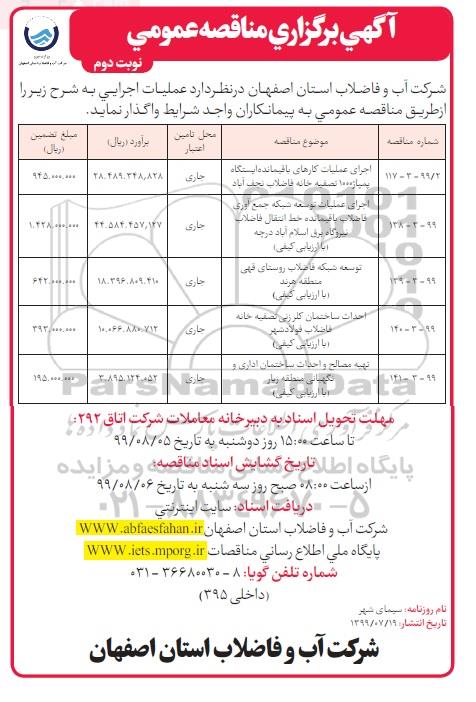 آگهي برگزاري مناقصه عمومي
نوبت دوم
شركت آب و فاضلاب استان اصفهان
شرکت آب و فاضلاب استان اصفهان درنظردارد عملیات اجرایی به شرح زیر را
ازطریق مناقصه عمومي به پیمانکاران واجد شرایط واگذار نماید.
شماره مناقصه موضوع مناقصه محل تامین اعتبار برآورد (ریال) مبلغ تضمین (ریال)
۹۹/۲ - ۳ - ۱۱۷ اجرای عملیات کارهای باقیمانده ایستگاه پمپاژ ۱۰۰۰ تصفیه خانه فاضلاب نجف آباد جاری ۲۸.۴۸۹.۳۴۸,۸۲۸ ۹۴۵.۰۰۰.۰۰۰
۹۹ - ۳ - ۱۳۸ اجرای عملیات توسعه شبکه جمع آوری فاضلاب باقیمانده خط انتقال فاضلاب نیروگاه برق اسلام آباد درچه (با ارزیابی کیفی) جاری ۴۴.۵۸۴.۴۵۷,۱۲۷ ۱.۴۲۸.۰۰۰.۰۰۰
۹۹ - ۳ - ۱۳۹ توسعه شبکه فاضلاب روستای قهی منطقه هرند (با ارزیابی کیفی) جاری ۱۸.۳۹۶.۸۰۹.۴۱۰ ۶۴۲.۰۰۰.۰۰۰
۹۹ - ۳ - ۱۴۰ احداث ساختمان کلرزنی تصفیه خانه فاضلاب فولادشهر (با ارزیابی کیفی) جاری ۱۰.۰۶۶.۸۸۰.۷۱۲ ۳۹۳.۰۰۰.۰۰۰
۹۹ - ۳ - ۱۴۱ تهیه مصالح و احداث ساختمان اداری و نگهبانی منطقه زیار (با ارزیابی کیفی) جاری ۳.۸۹۵.۱۲۴.۰۵۲ ۱۹۵.۰۰۰.۰۰۰
مهلت تحویل اسناد به دبیرخانه معاملات شرکت اتاق ۲۹۲:
تا ساعت ۱۵:۰۰ روز دوشنبه به تاریخ ۹۹/۰۸/۰۵
تاریخ گشایش اسناد مناقصه:
ازساعت ۰۸:۰۰ صبح روز سه شنبه به تاریخ ۹۹/۰۸/۰۶
دریافت اسناد: سایت اینترنتي
شرکت آب و فاضلاب استان اصفهان WWW.abfaesfahan.ir
پایگاه ملي اطلاع رساني مناقصات WWW.iets.mporg.ir
شماره تلفن گویا: ۸ - ۳۶۶۸۰۰۳۰ - ۰۳۱
(داخلی ۳۹۵)
نام روزنامه: سیمای شهر
تاریخ انتشار: ۱۳۹۹/۰۷/۱۹
شرکت آب و فاضلاب استان اصفهان
ParsNamadData
پایگاه اطلاع رسانی مناقصه و مزایده
۰۲۱-۸۸۳۴۹۶۷۰-۵